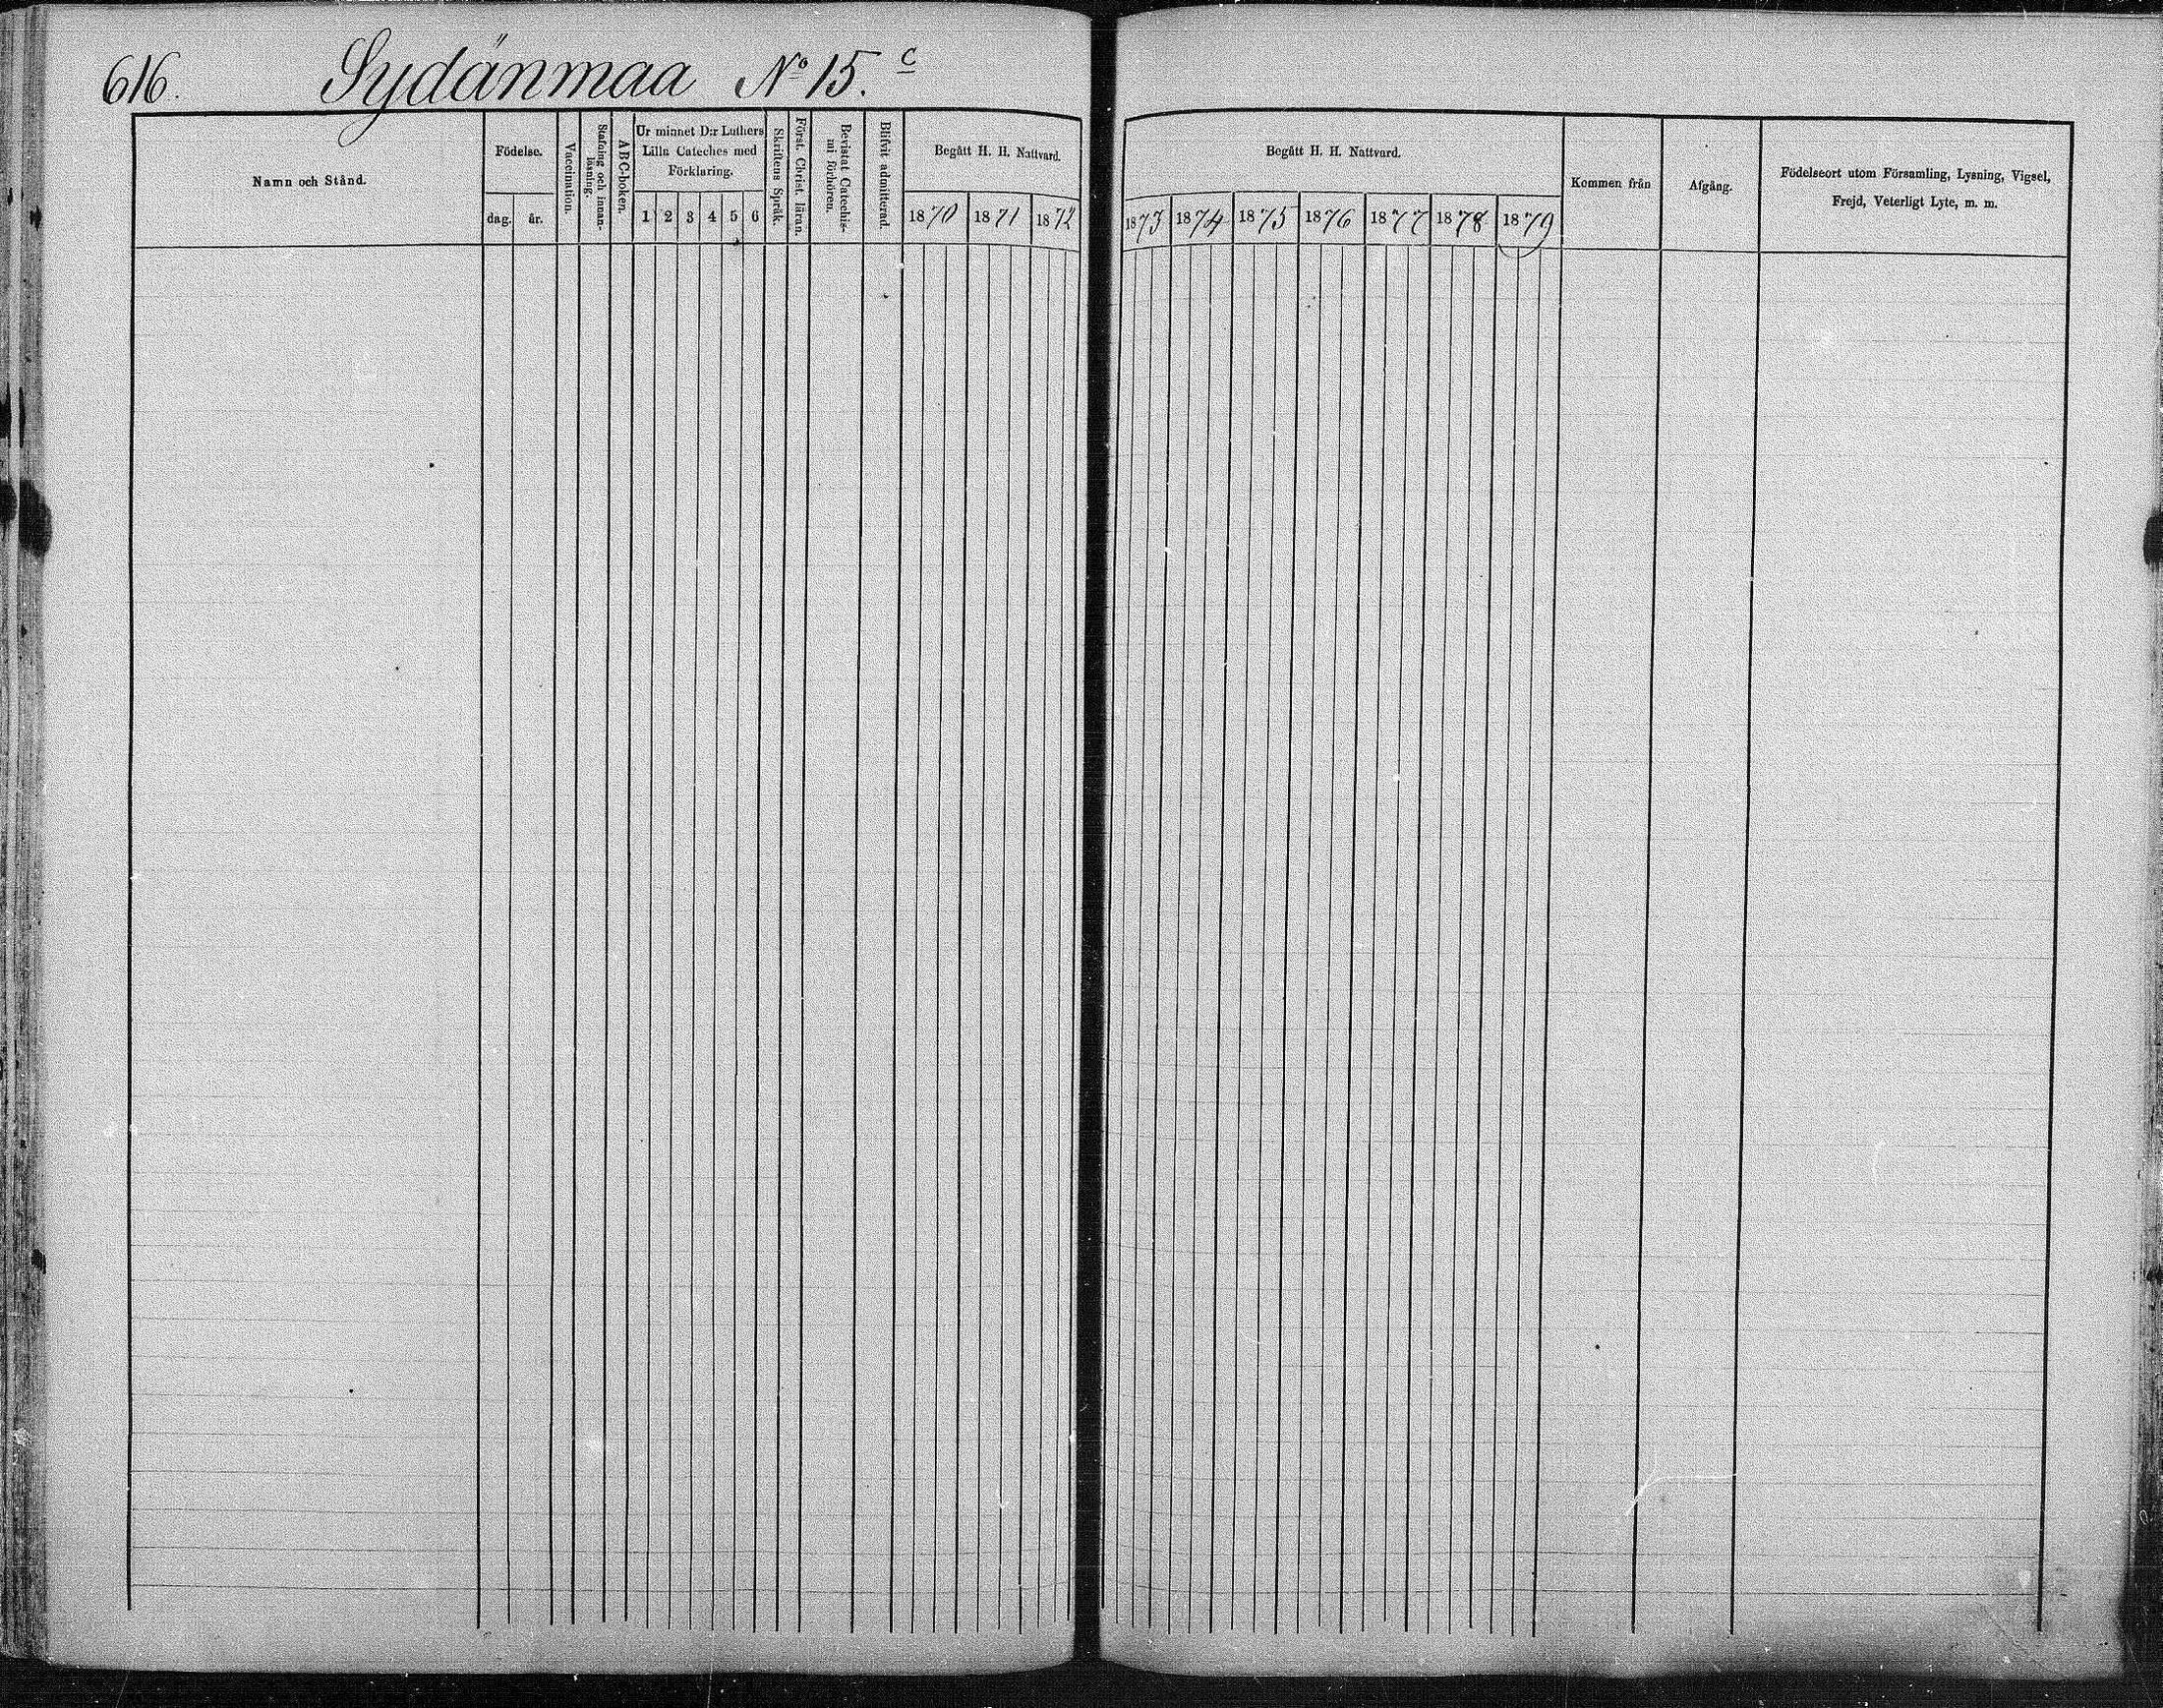 616. Sydänmaa No 15. c
Namn och Stånd.
Födelse.
dag. år.
Vaccination.
Stafning och innan-
läsning.
ABC-boken.
Ur minnet D:r Luthers
Lilla Cateches med
Förklaring.
1 2 3 4 5 6
Skriftens Språk.
Först. Christ. läran.
Bevistat Catechis-
mi förhören.
Blifvit admitterad.
Begått H. H. Nattvard.
1870 1871 1872
Begått H. H. Nattvard.
1873 1874 1875 1876 1877 1878 1879
Kommen från
Afgång.
Födelseort utom Församling, Lysning, Vigsel,
Frejd, Veterligt Lyte, m. m.